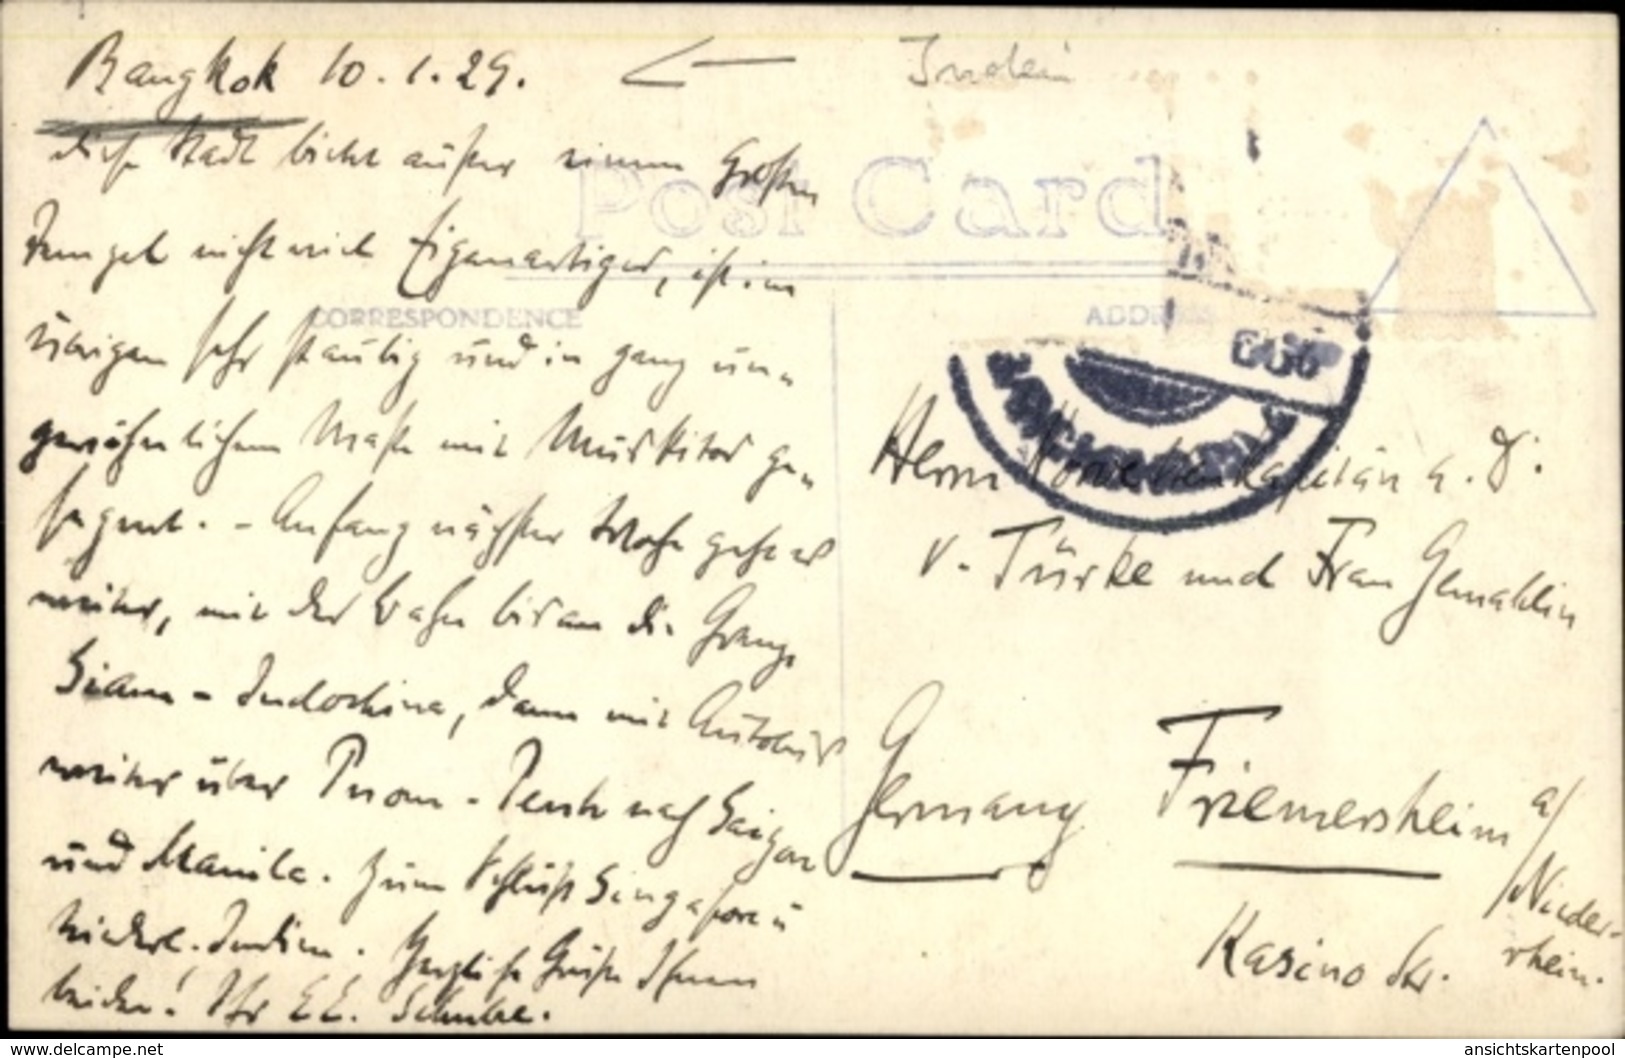 Bangkok 10.1.29.
Indien
diese Stadt bietet außer einem Großen
Tempel nicht viel Eigenartiges, ist im
übrigen sehr staubig und in ganz un=
gewöhnlichem Maße mit Muskitos ge=
segnet. - Anfang nächster Woche geht es
weiter, mit der Bahn bis an die Grenze
Siam - Indochina, dann mit Autobus
weiter über Pnom-Penh nach Saigon
und Manila. Zum Schluß Singapore u
niederl. Indien. Herzliche Grüße Ihnen
beiden! Ihr
Post Card
CORRESPONDENCE
ADDRESS
Herrn Korvettenkapitän a. D.
v. Türke und Frau Gemahlin
Germany
Friemersheim a/
Nieder-
rhein.
Kasino Str.
www.delcampe.net
ansichtskartenpool